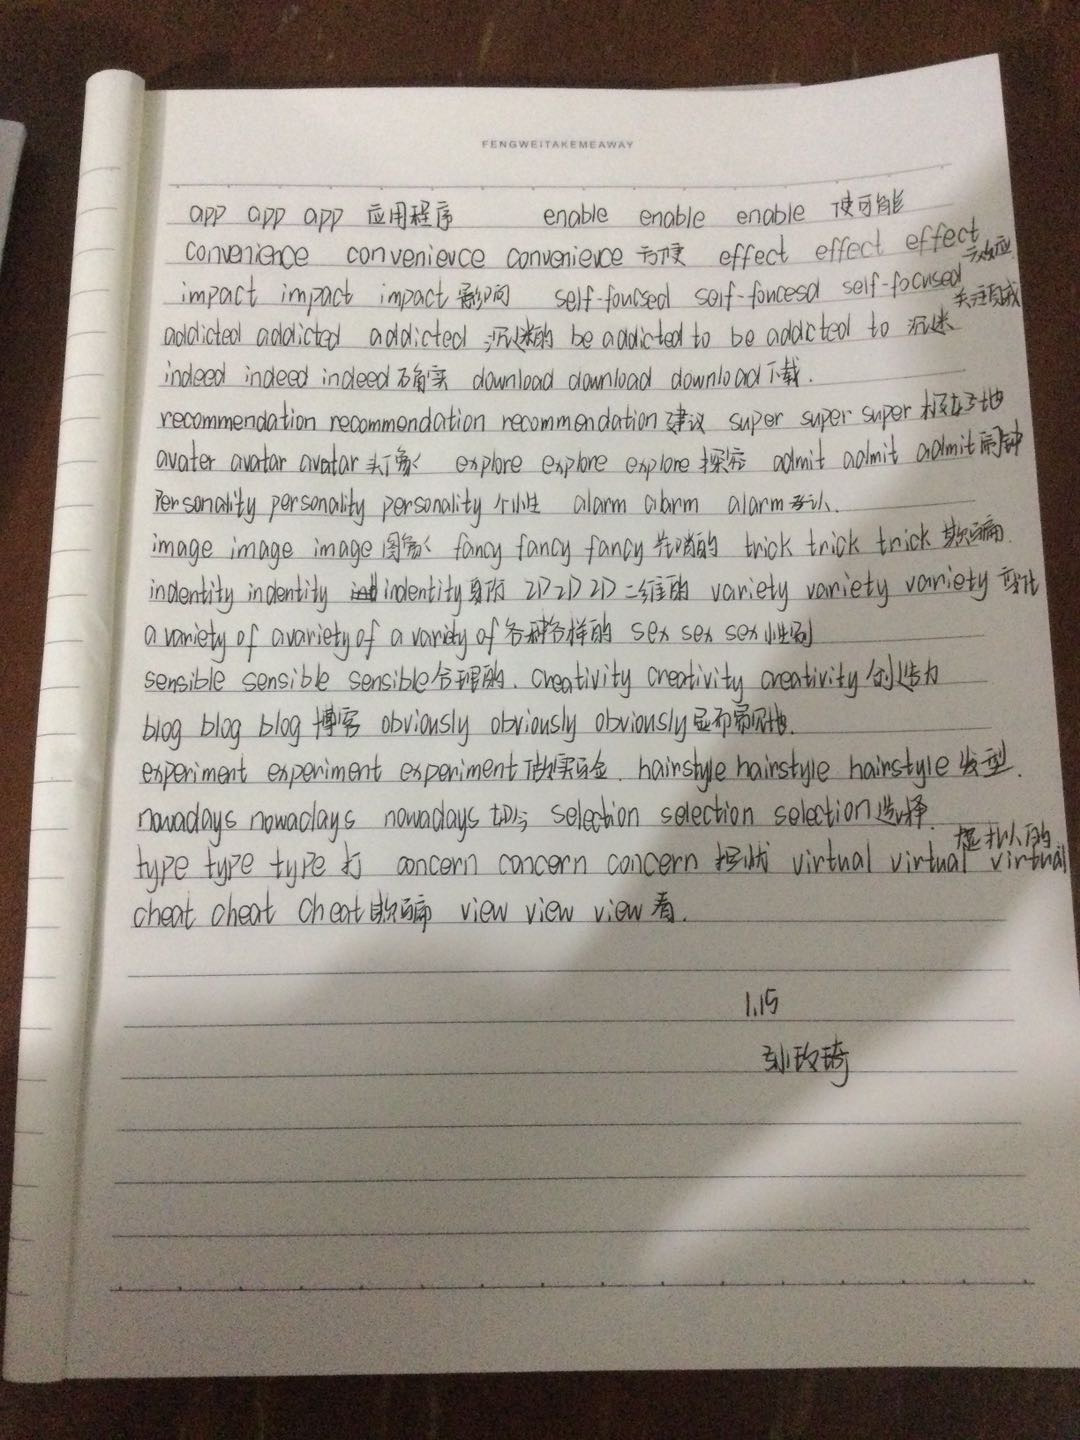 FENGWEITAKEMEAWAY
app app app 应用程序 enable enable enable 使可能
convenience convenievce convenievce 方便 effect effect effect 效应
impact impact impact 影响 self-foucsed self-foucesd self-focused 关注自我
addicted addicted addicted 沉迷的 be addicted to be addicted to 沉迷
indeed indeed indeed 确实 download download download 下载.
recommendation recommendation recommendation 建议 super super super 极好地
avater avatar avatar 头像 explore explore explore 探究 admit admit admit 闹钟
Personality personality personality 个性 alarm alarm alarm 承认.
image image image 图像 fancy fancy fancy 花哨的 trick trick trick 欺骗.
indentity indentity indentity 身份 2D 2D 2D 二维的 variety variety variety 变化
a variety of a variety of a variety of 各种各样的 sex sex sex 性别
sensible sensible sensible 合理的. creativity creativity creativity 创造力
blog blog blog 博客 obviously obviously obviously 显而易见地.
experiment experiment experiment 做实验. hairstyle hairstyle hairstyle 发型.
nowadays nowadays nowadays 如今 selection selection selection 选择.
type type type 打 concern concern concern 担忧 virtual virtual virtual 虚拟的
cheat cheat cheat 欺骗 view view view 看.
1.15